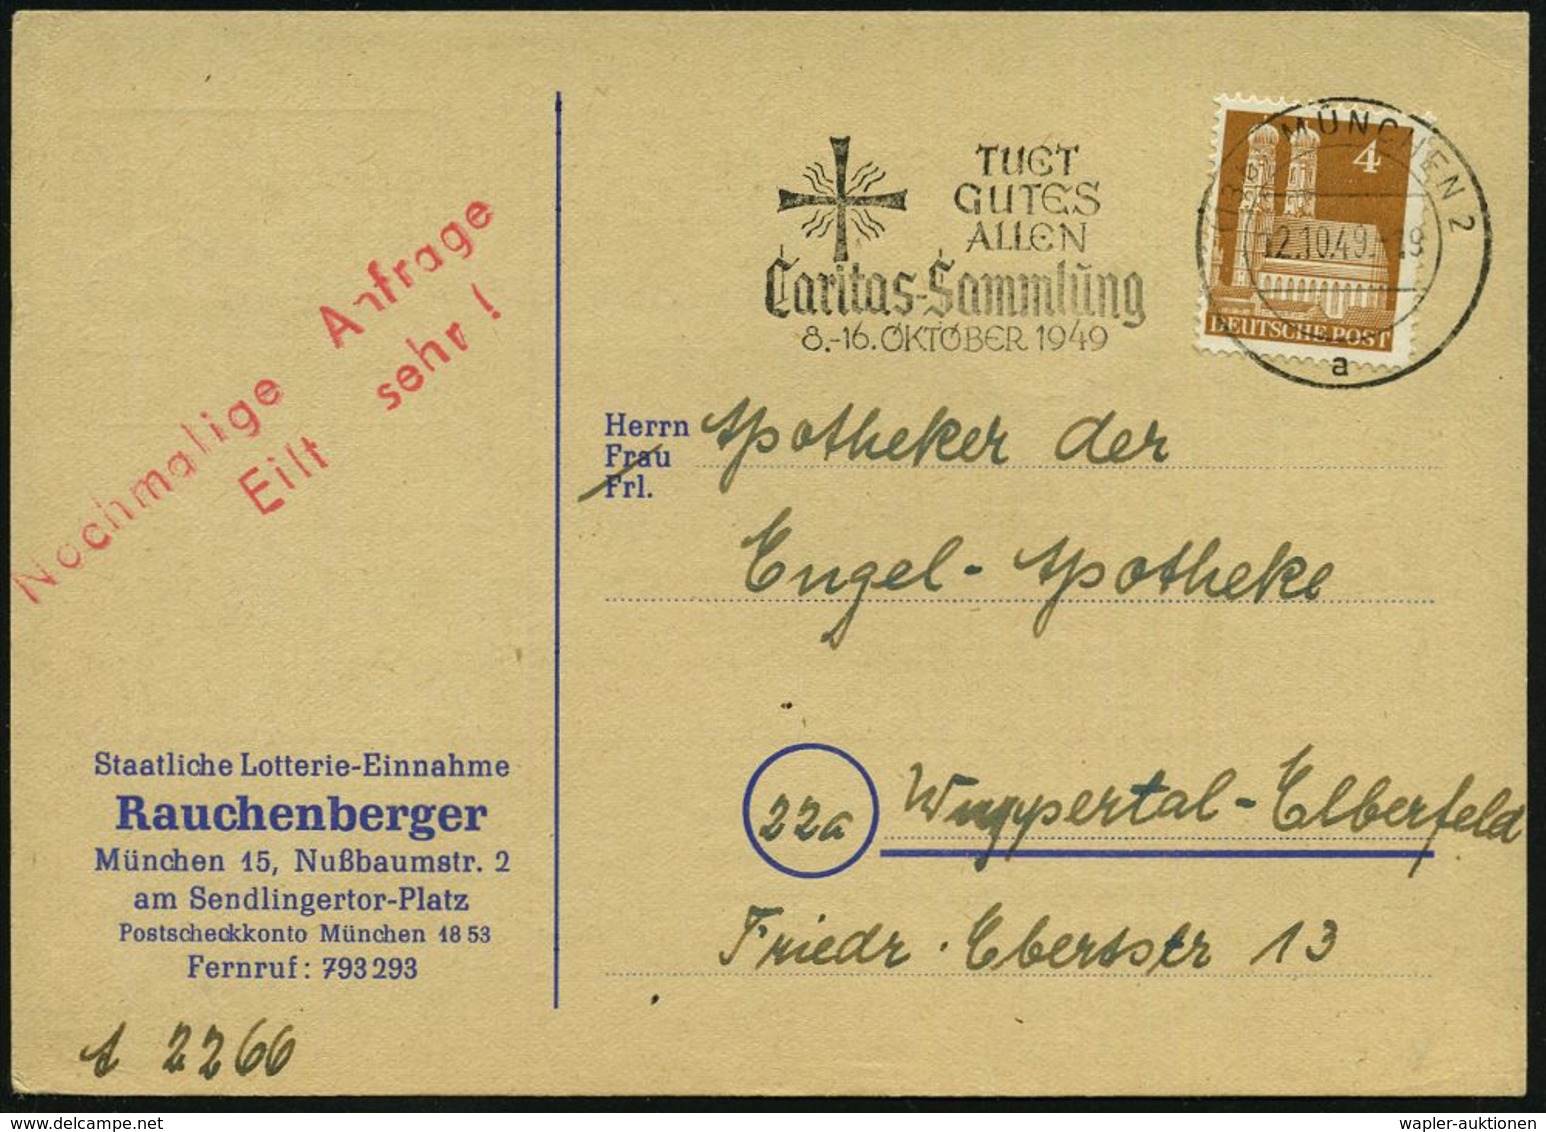 Nochmalige Anfrage
Eilt sehr!
TUET
GUTES
ALLEN
Caritas-Sammlung
8.-16. OKTOBER 1949
4
DEUTSCHE POST
MÜNCHEN 2
12.10.49
a
Herrn Apotheker der
Frau
Frl.
Engel-Apotheke
22a Wuppertal-Elberfeld
Friedr. Ebertstr 13
Staatliche Lotterie-Einnahme
Rauchenberger
München 15, Nußbaumstr. 2
am Sendlingertor-Platz
Postscheckkonto München 18 53
Fernruf: 793 293
A 2266
wapler-auktionen